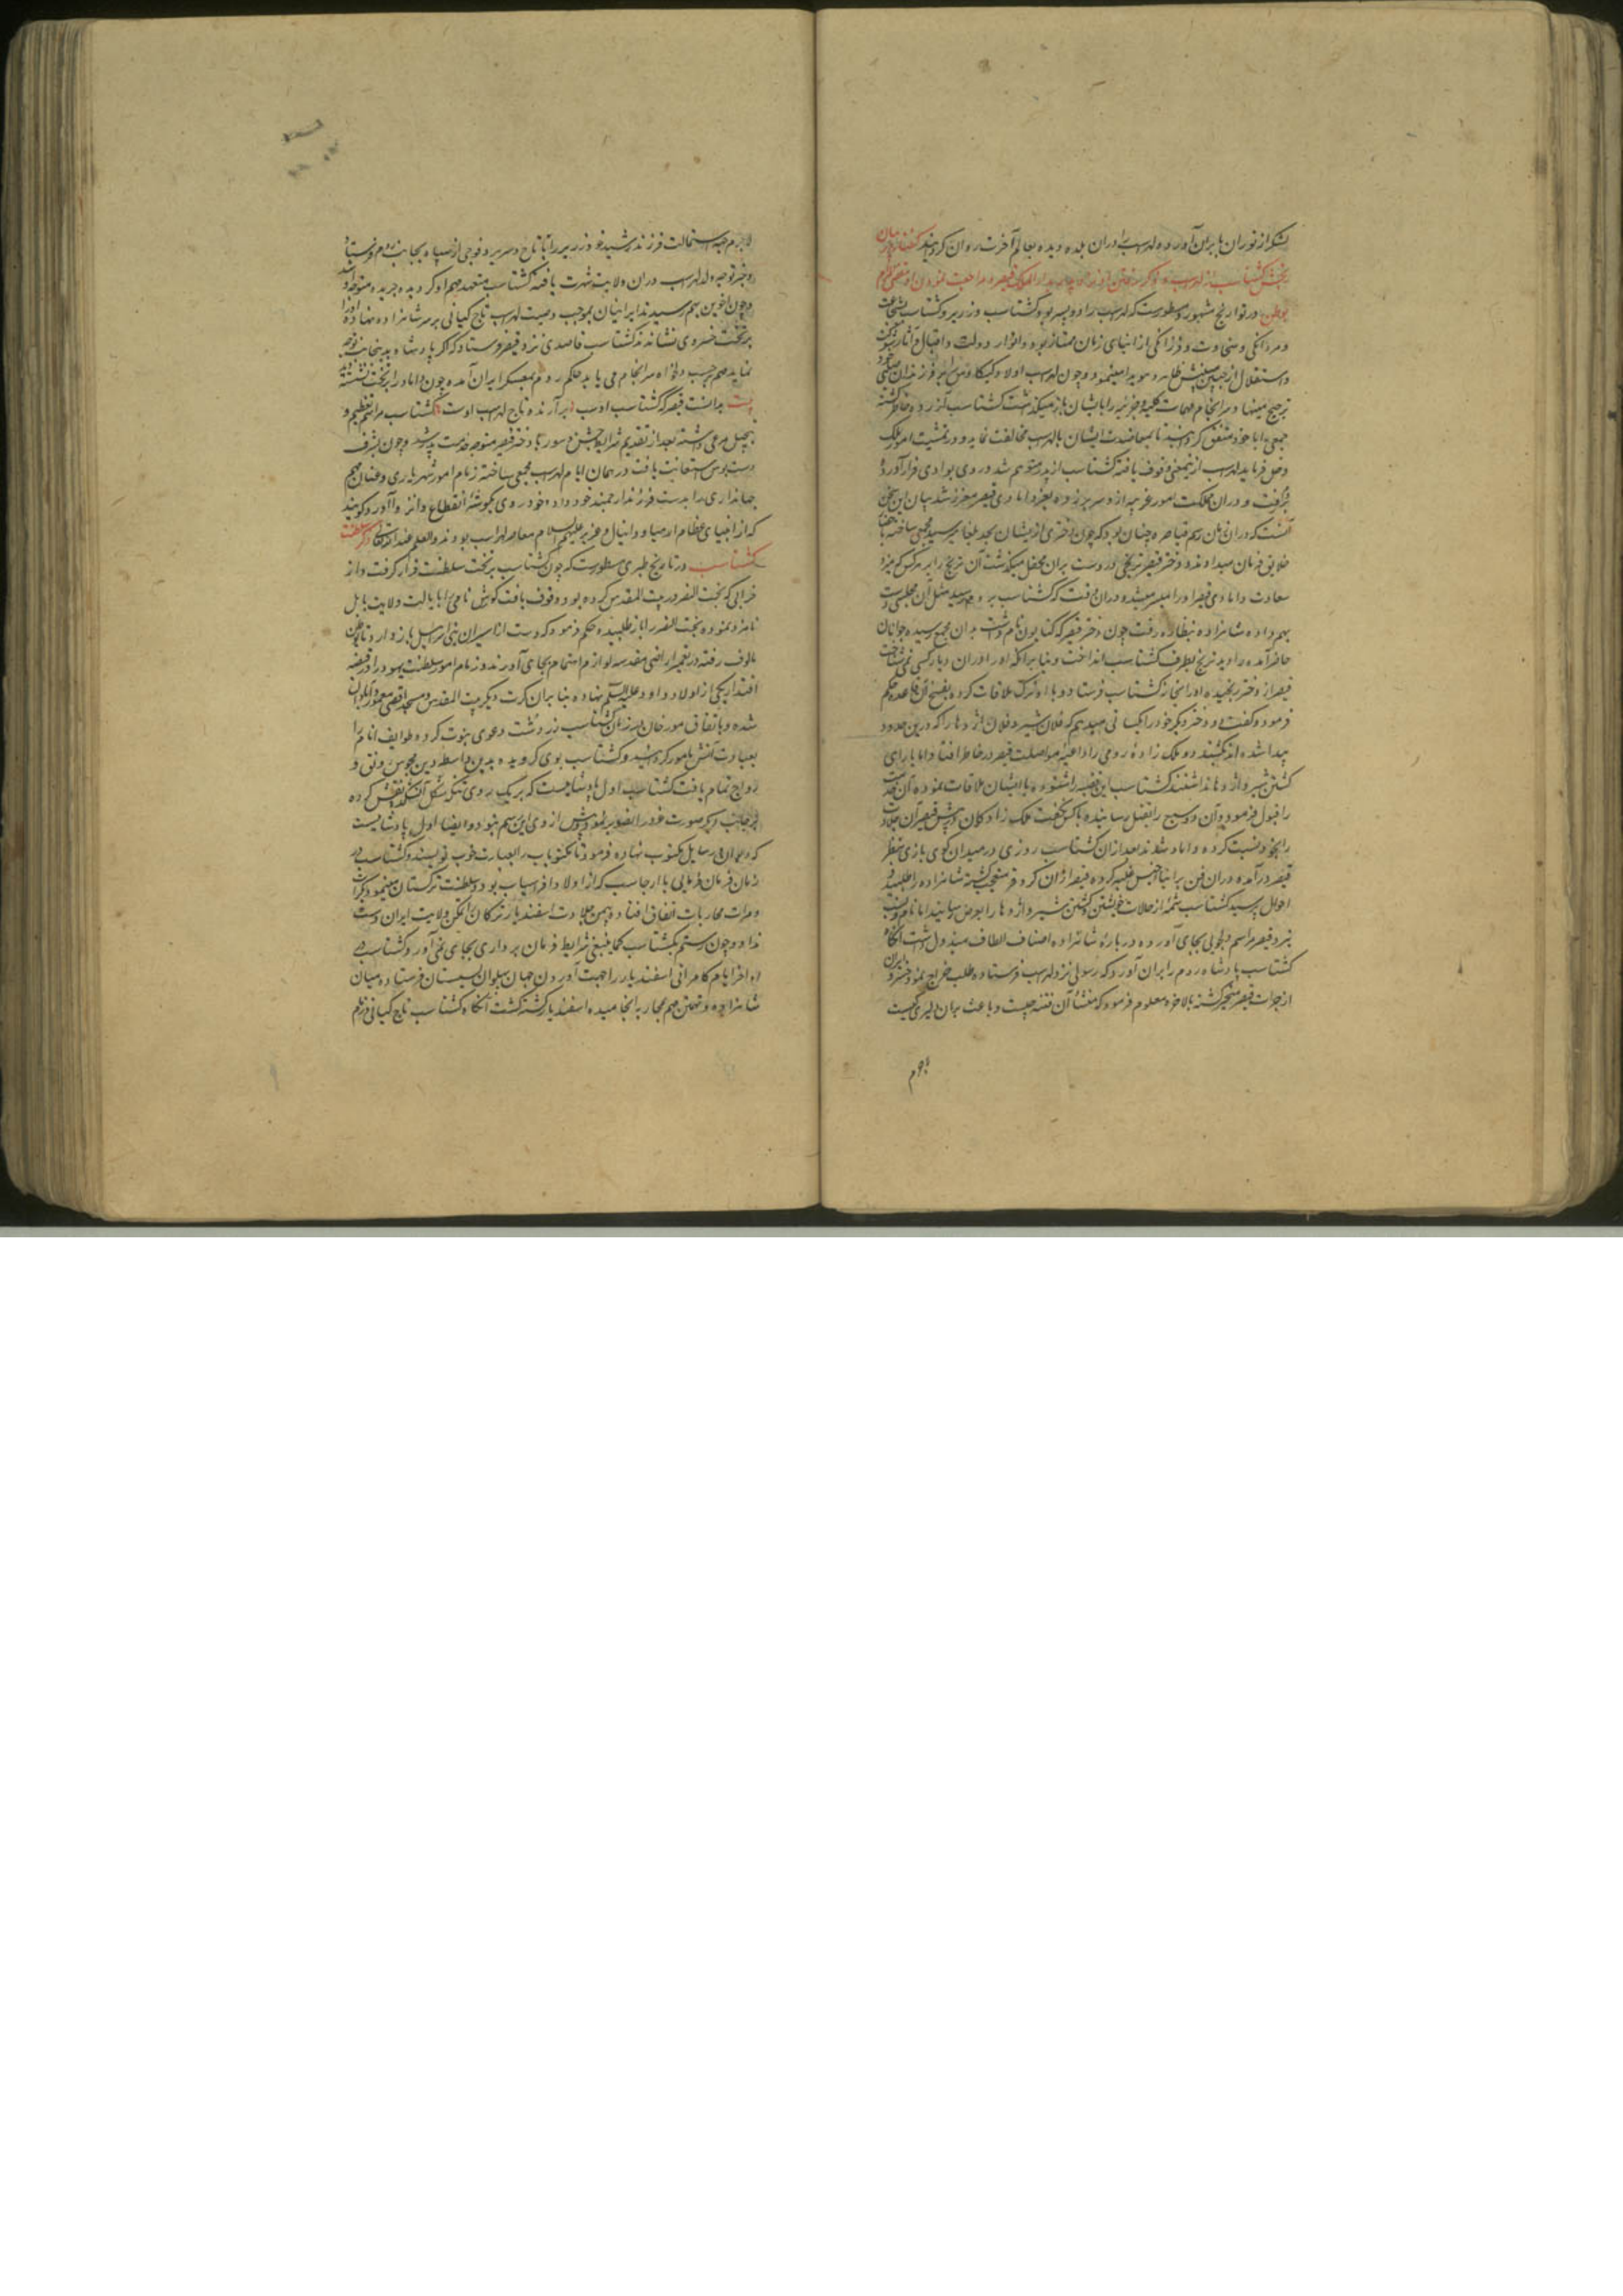 لشکر از توران بایران آورده لهراسب را دران بلده دیده بعالم آخرت روان کردانید گفتار در بیان
رنجش کشتاسب از لهراسب و ذکر رفتن او
بوطن در تواریخ مشهوره مسطورست که لهراسب را دو پسر بود کشتاسب و زریر و کشتاسب بشجاعت
و مردانکی و سخاوت و فرزانکی از ابنای زمان ممتاز بود و انوار دولت و اقبال و آثار
و استقلال از جبین مبینش ظاهر و هویدا مینمود و چون لهراسب اولاد کیکاوس را بر فرزندان صلبی خود
ترجیح مینهاد و سرانجام مهمات کلیه و جزئیه را بایشان باز میکذشت کشتاسب آزرده خاطر کشته
جمعی را با خود متفق کردانید تا بمعاضدت ایشان با لهراسب مخالفت نماید و در تمشیت امور ملک
دخل فرماید لهراسب ازین معنی وقوف یافته کشتاسب از پدر متوهم شد و روی بوادی فرار آورد
و دران مملکت امور غریبه ازو سر بر زده بعز دامادی قیصر معزز شد بیان این سخن
آنست که دران زمان رسم قیاصره چنان بود که چون دختری از ایشان بحد بلوغ میرسید مجمعی ساخته
خلایق فرمان میدادند و دختر قیصر ترنجی در دست بران محفل میکذشت آن ترنج را بر هر کس که میزد
سعادت دامادی قیصر او را میسر میشد و دران وقت که کشتاسب بروم رسید مثل آن مجلسی دست
بهم داده شاهزاده بنظاره رفت چون دختر قیصر که کتایون نام داشت بدان مجمع رسیده جوانان
حاضر آمده را دید ترنج بطرف کشتاسب انداخت و بنابر آنکه او را دران دیار کسی نمی شناخت
قیصر از دختر رنجیده او را بخانه کشتاسب فرستاد و با او ترک ملاقات کرده بفسخ آن قاعده حکم
فرمود و کفت دو دختر دیکر خود را بکسانی میدهم که فلان شیر و فلان اژدها را که درین حدود
پیدا شده اند بکشند دو ملک زاده رومی را داعیه مواصلت قیصر در خاطر افتاد اما یارای
کشتن شیر و اژدها نداشتند کشتاسب این قضیه را شنوده با ایشان ملاقات نموده آن خدمت
را قبول فرمود و آن دو سبع را بقتل رسانیده باکس نکفت ملک زادکان پیش قیصر آن جلادت
را بخود نسبت کرده داماد شدند بعد ازان کشتاسب روزی در میدان کوی بازی بنظر
قیصر درآمده دران فن بر ابنای جنس غلبه کرده قیصر ازان کر و فر متعجب کشته شاهزاده را طلبید و
احوال پرسید کشتاسب شمه از حالات خویشتن و کشتن شیر و اژدها را بعرض رسانید اما نام و نسب
قیصر مراسم دلجویی بجای آورده درباره شاهزاده اصناف الطاف مبذول داشت آنکاه
کشتاسب پادشاه روم را بران آورد که رسولی نزد لهراسب فرستاده طلب خراج نمود خسرو ایران
از جرات قیصر متحیر کشته بالاخره معلوم فرمود که منشاء آن فتنه چیست و باعث بران دلیری کیست
لاجرم
لاجرم جهه استمالت فرزند رشید خود زریر را با تاج و سریر و فوجی از سپاه بجانب روم فرستاد
و خبر توجه ولد لهراسب دران ولایت شهرت یافته کشتاسب متعهد مهم او کردیده جریده متوجه شد
و چون اخوین بهم رسیدند ایرانیان بموجب وصیت لهراسب تاج کیانی بر سر شاهزاده نهاده او را
بر تخت خسروی نشاندند کشتاسب قاصدی نزد قیصر فرستاد که اکر پادشاه بدینجانب توجه
نماید مهم بر حسب دلخواه سرانجام می یابد حاکم روم بمعسکر ایران آمده چون داماد را بر تخت نشسته دید
بیت بدانست قیصر که کشتاسب اوست برآرنده تاج لهراسب اوست کشتاسب مراسم تعظیم و
تبجیل مرعی داشته بعد از تقدیم شرایط جشن و سور با دختر قیصر متوجه خدمت پدر شد و چون بشرف
دست بوس استعانت یافت در همان ایام لهراسب مجمعی ساخته زمام امور شهریاری و عنان مهم
جهانداری را بدست فرزند ارجمند خود داد و خود روی بکوشه انقطاع و انزوا آورد و کویند
که از انبیای عظام ارمیا و دانیال و عزیر علیهم السلام معاصر لهراسب بودند والعلم عند الله تعالی ذکر سلطنت
کشتاسب در تاریخ طبری مسطورست که چون کشتاسب بر تخت سلطنت قرار کرفت و از
خرابی که بخت النصر در بیت المقدس کرده بود وقوف یافت کورش نامی را بایالت ولایت بابل
نامزد نموده بخت النصر را باز طلبیده حکم فرمود که دست از اسیران بنی اسرائیل باز دارد تا بوطن
مالوف رفته در تعمیر اراضی مقدسه لوازم اهتمام بجای آورند و زمام امور سلطنت یهود را در قبضه
اقتدار یکی از اولاد داود علیه السلم نهاده بنابران کرت دیکر بیت المقدس و مسجد اقصی معمور و آبادان
شده و باتفاق مورخان در زمان کشتاسب زردشت دعوی نبوت کرده طوایف انام را
بعبادت آتش مامور کردانید و کشتاسب بوی کرویده بدین واسطه دین مجوس رونق و
رواج تمام یافت کشتاسب اول پادشاهیست که بر یک روی تنکه شکل آتشکده نقش کرده
بر جانب دیکر صورت خود را تصویر نمود و پیش از وی این رسم نبود و ایضا اول پادشاهیست
که دیوان رسایل مکتوب نهاده فرمود تا مکتوبات را بعبارت خوب نویسند و کشتاسب در
زمان فرمان فرمایی با ارجاسب که از اولاد افراسیاب بود و سلطنت ترکستان مینمود بکرات
و مرات محاربات اتفاق افتاده بیمن جلادت اسفندیار ترکان را تمکن ولایت ایران دست
نداد و چون رستم کشتاسب کما ینبغی شرایط فرمان برداری بجای نمی آورد کشتاسب در
اواخر ایام کامرانی اسفندیار را جهت آوردن جهان پهلوان بسیستان فرستاده میان
شاهزاده و تهمتن مهم بمحاربه انجامیده اسفندیار کشته کشت آنکاه کشتاسب تاج کیانی و زمام